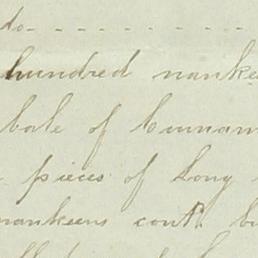 do - - - - - - - - -
hundred nanke
bale of Cinnam
pieces of Long
nankeens cont.